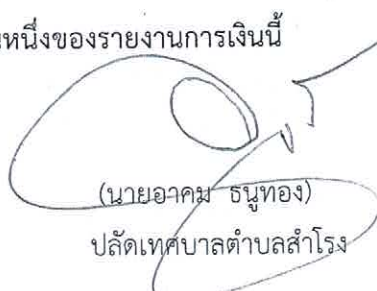 หนึ่งของรายงานการเงินนี้
(นายอาคม ธนูทอง)
ปลัดเทศบาลตำบลสำโรง